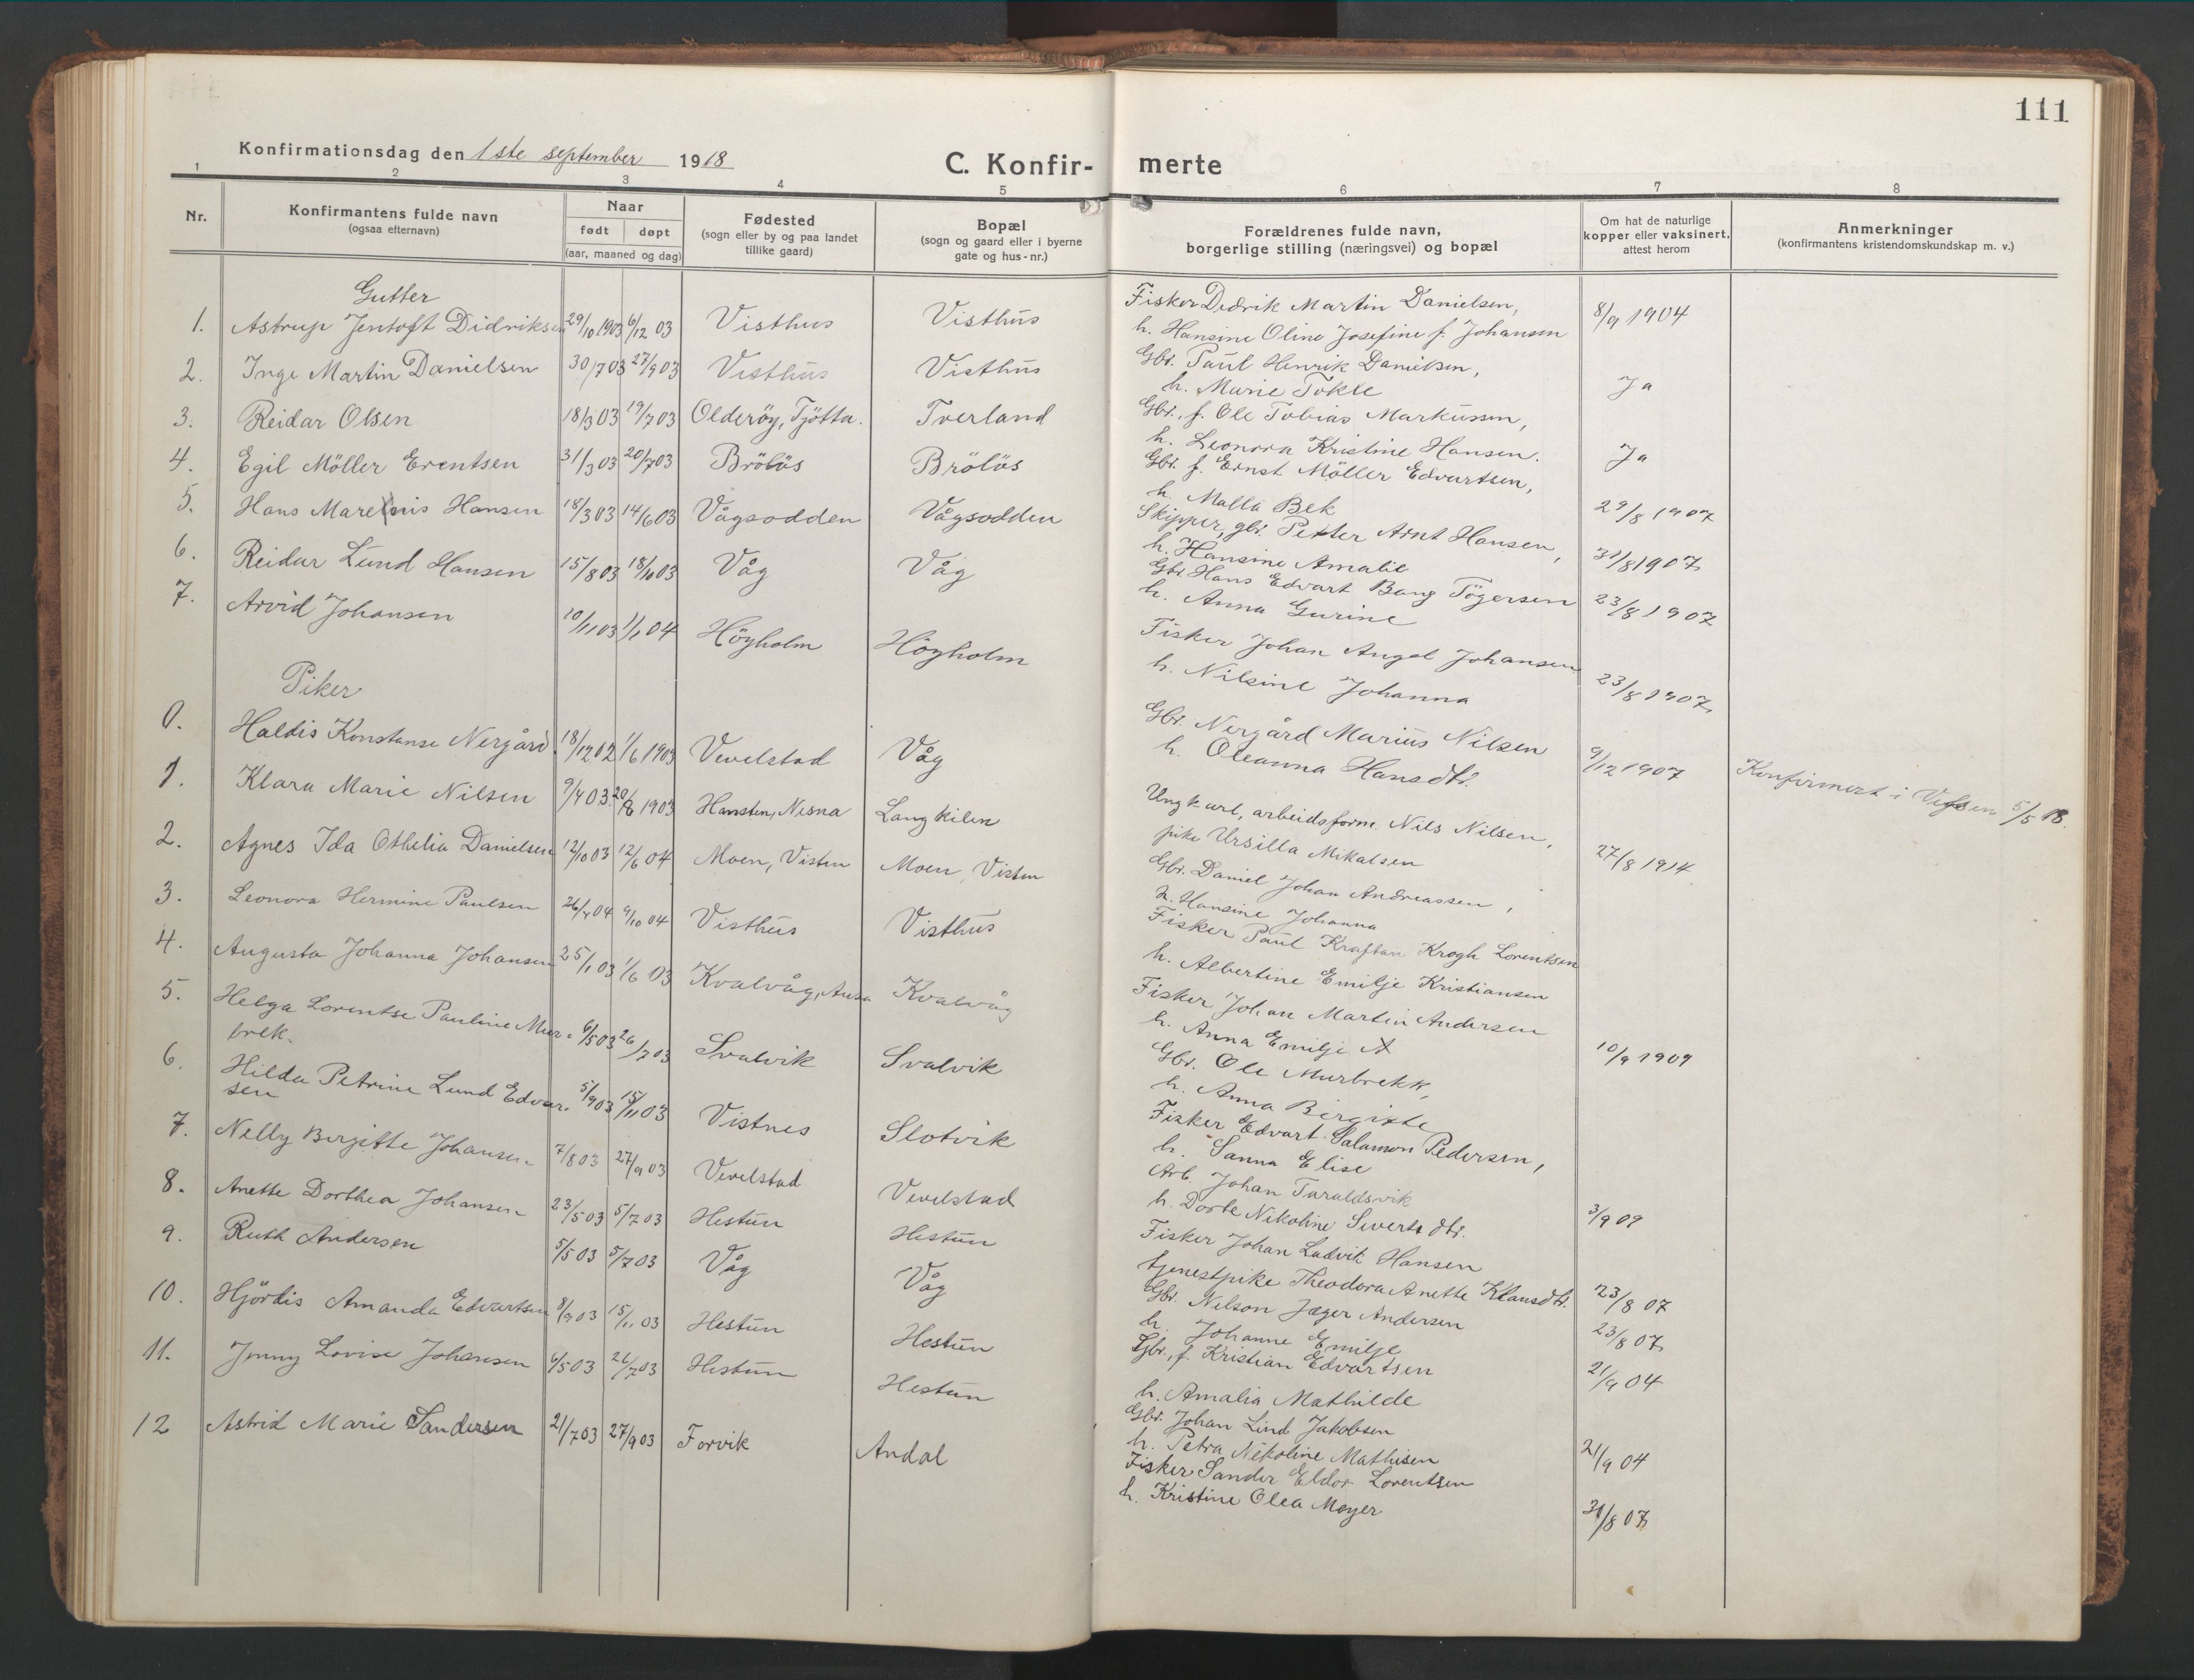 111
Konfirmationsdag den 1ste september 1918
C. Konfir- merte
1 2 3 4 5 6 7 8
Nr.
Konfirmantens fulde navn
(ogsaa efternavn)
Naar
født døpt
(aar, maaned og dag)
Fødested
(sogn eller by og paa landet
tillike gaard)
Bopæl
(sogn og gaard eller i byerne
gate og hus-nr.)
Forældrenes fulde navn,
borgerlige stilling (næringsvei) og bopæl
Om hat de naturlige
kopper eller vaksinert,
attest herom
Anmerkninger
(konfirmantens kristendomskundskap m. v.)
Gutter
1. Astrup Jentoft Didriksen 29/10 1903 6/12 03 Visthus Visthus Fisker Dedrik Martin Danielsen, 8/9 1904
h. Hansine Oline Josefine f. Johansen
2. Inge Martin Danielsen 30/7 03 27/9 03 Visthus Visthus Gbr. Paul Henrik Danielsen, Ja
h. Marie Tokle
3. Reidar Olsen 18/3 03 19/7 03 Olderöy, Tjötta. Tverland Gbr., f. Ole Tobias Markussen, Ja
h. Leonora Kristine Hansen.
4. Egil Möller Erentsen 31/3 03 20/7 03 Brölös Brölös Gbr. f. Ernst Möller Edvartsen, 29/8 1907
h. Malla Bek
5. Hans Marenius Hansen 18/3 03 14/6 03 Vågsodden Vågsodden Skipper, gbr. Petter Arnt Hansen, 31/8 1907
h. Hansine Amalie
6. Reidar Lund Hansen 15/8 03 18/10 03 Våg Våg Gbr. Hans Edvart Bang Tögersen 23/8 1907
h. Anna Gurine
7. Arvid Johansen 10/11 03 1/1 04 Höyholm Höyholm Fisker Johan Angel Johansen 23/8 1907
h. Nilsine Johanna
Piker
0. Haldis Konstanse Nergård 18/12 02 1/6 1903 Vevelstad Våg Gbr. Nergård Marius Nilsen 9/12 1907 Konfirmert i Vefsen 5/5 18.
h. Oleanna Hansdtr.
1. Klara Marie Nilsen 9/4 03 20/8 1903 Hansten, Nesna Langkilen Ungkarl, arbeidsform. Nils Nilsen, 27/8 1914
pike Ursilla Mikalsen
2. Agnes Ida Othelia Danielsen 12/10 03 12/6 04 Moen, Visten Moen, Visten Gbr. Daniel Johan Andreassen,
h. Hansine Johanna
3. Leonora Hermine Paulsen 26/4 04 9/10 04 Visthus Visthus Fisker Paul Kraftan Krogh Lorentsen
h. Albertine Emilje Kristiansen
4. Augusta Johanna Johansen 25/1 03 1/6 03 Kvalvåg, Kvalvåg Fisker Johan Martin Andersen 10/9 1909
h. Anna Emilje A
5. Helga Lorentse Pauline Mur- 6/5 03 26/7 03 Svalvik Svalvik Gbr. Ole Murbrekk,
brek. h. Anna Birgitte
6. Hilda Petrine Lund Edvar- 5/9 03 15/11 03 Vistnes Slotvik Fisker Edvart Salamon Pedersen,
sen h. Sanna Elise
7. Nelly Birgitte Johansen 7/8 03 27/9 03 Vevelstad Vevelstad Arb. Johan Taraldsvik 3/9 09
h. Dorte Nikoline Sivertsdtr.
8. Anette Dorthea Johansen 23/5 03 5/7 03 Hestun Hestun Fisker Johan Ludvik Hansen 23/8 07
tjenestpike Theodora Anette Klausdtr.
9. Ruth Andersen 5/5 03 5/7 03 Våg Våg Gbr. Nelson Jæger Andersen 23/8 07
h. Johanne Emilje
10. Hjördis Amanda Edvartsen 8/9 03 15/11 03 Hestun Hestun Gbr., f. Kristian Edvartsen 21/9 04
h. Amalia Mathilde
11. Jenny Lovise Johansen 6/5 03 26/7 03 Hestun Hestun Gbr. Johan Lind Jakobsen 21/9 04
h. Petra Nikoline Mathisen
12 Astrid Marie Sandersen 21/7 03 27/9 03 Forvik Andal Fisker Sander Eldor Lorentsen 31/8 07
h. Kristine Olea Meyer